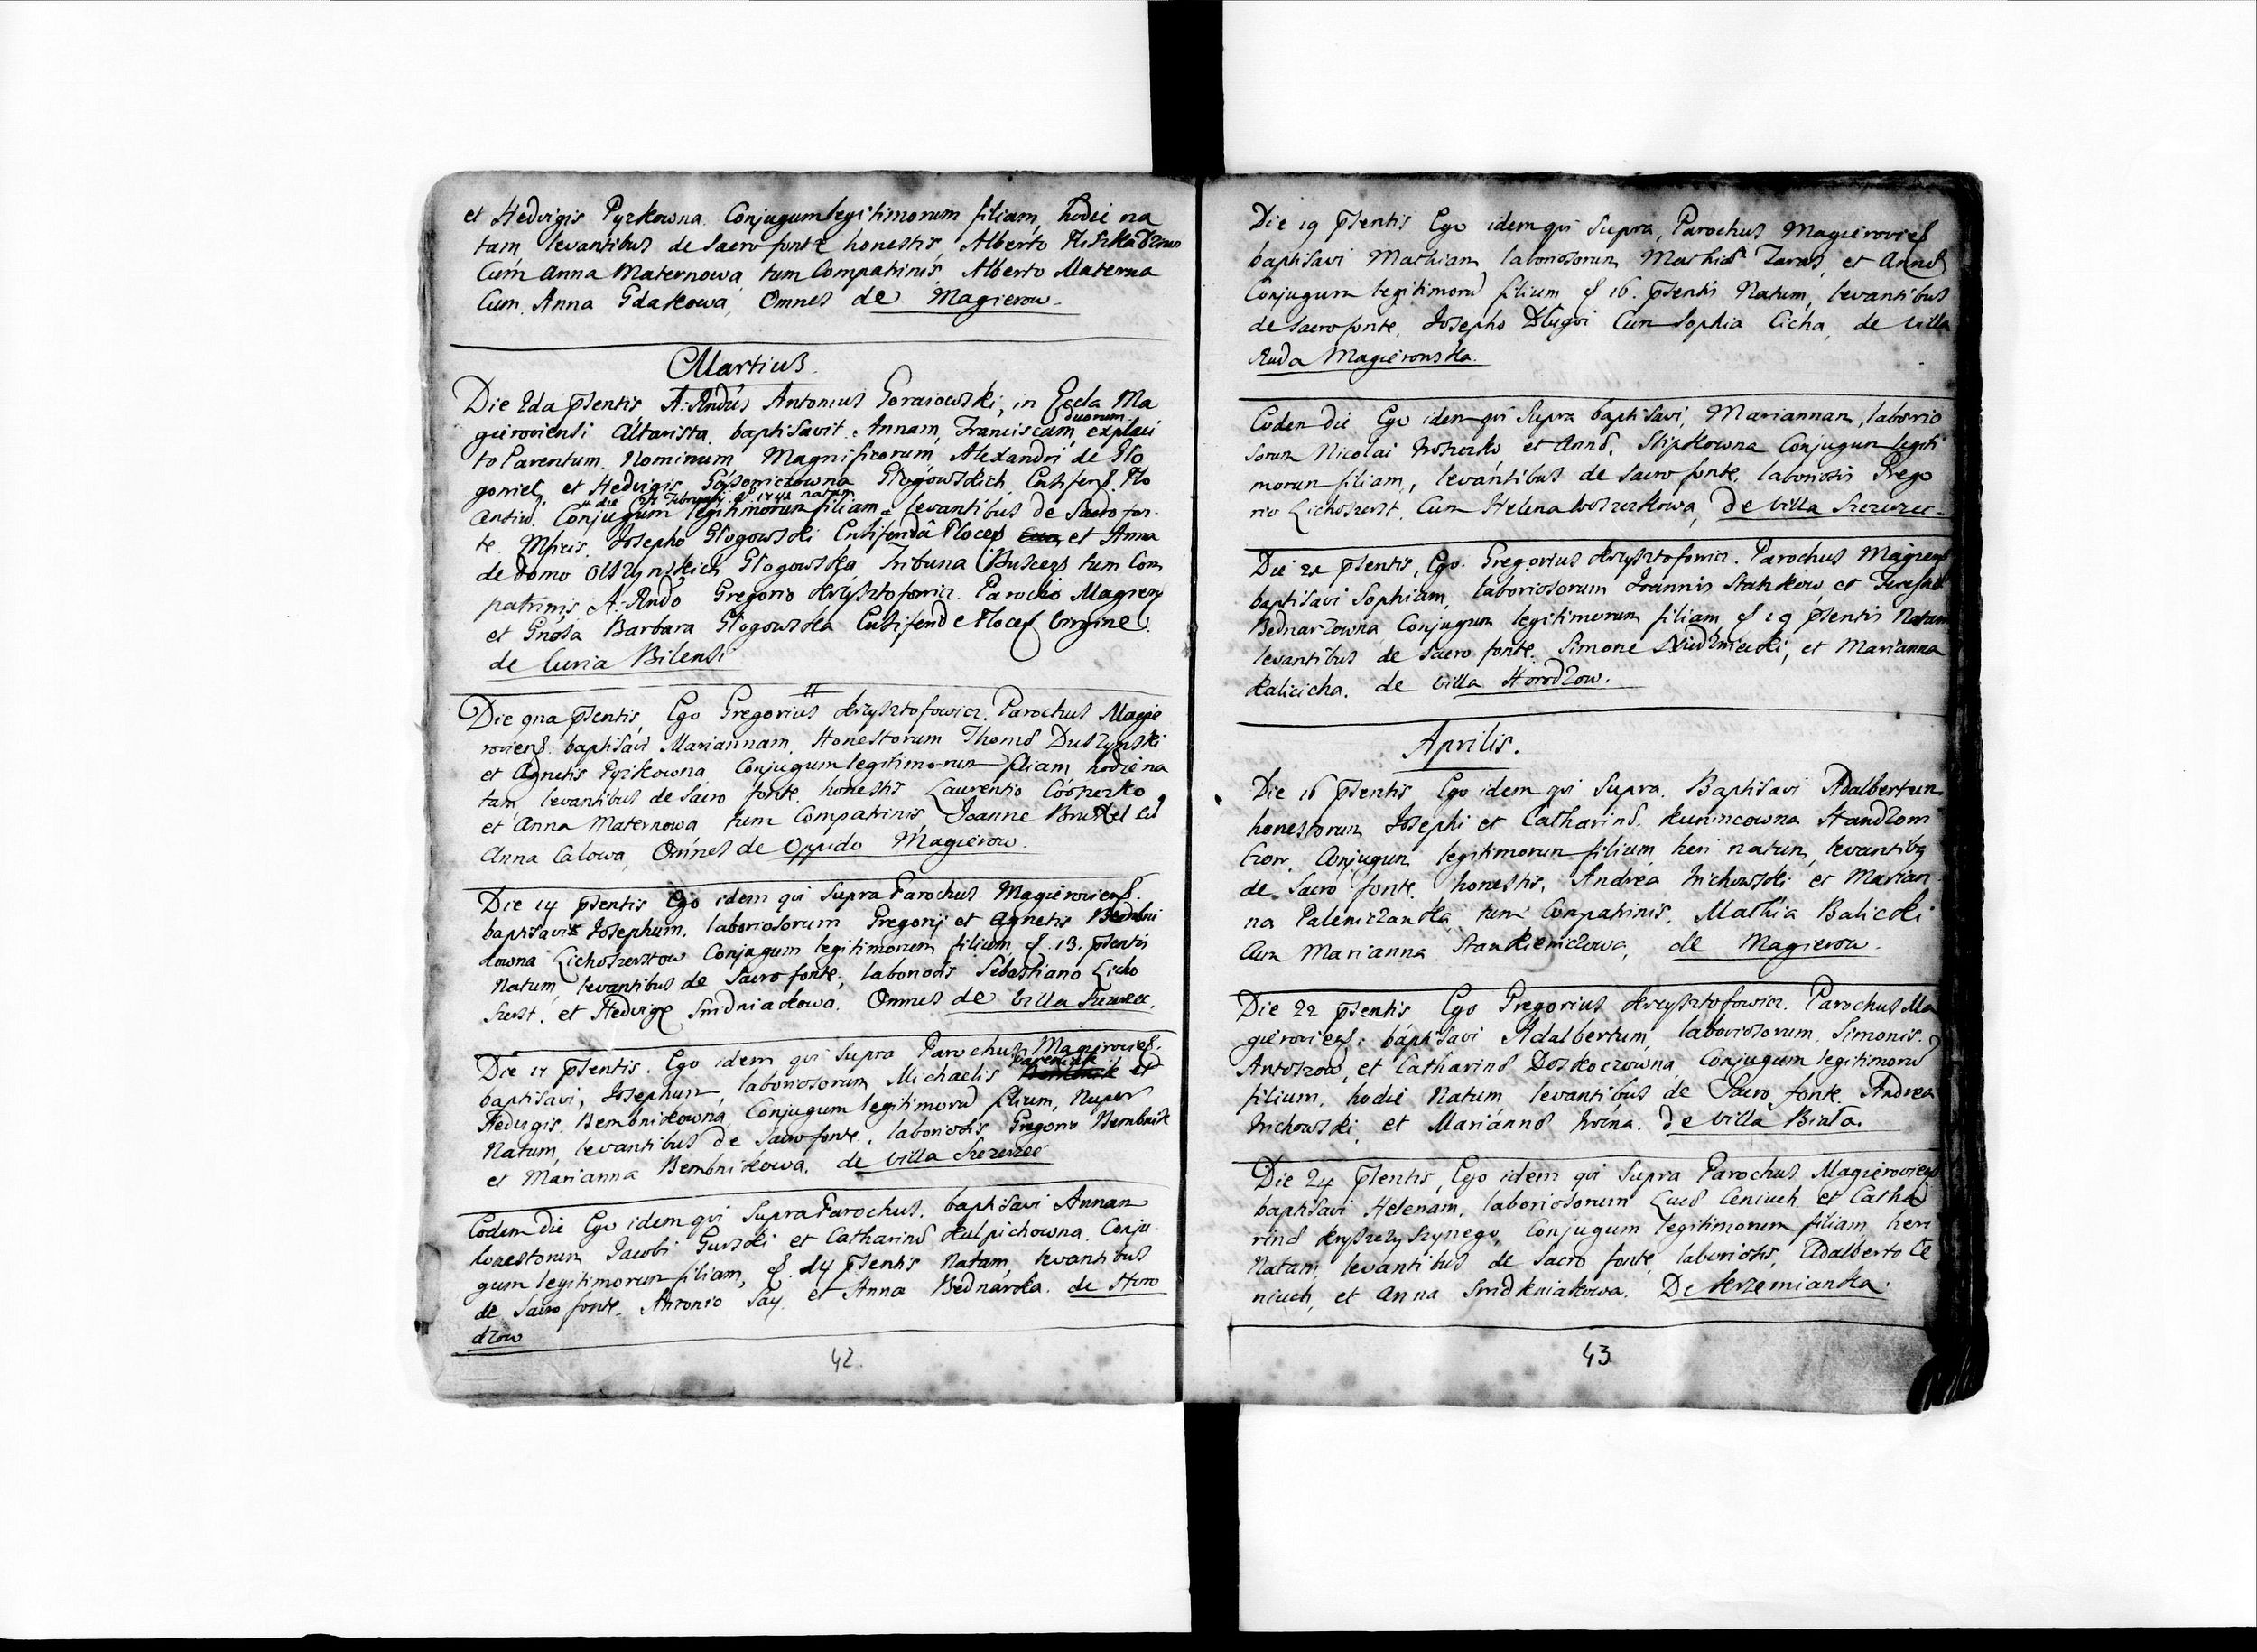 et Hedvigis Pyzkowna Conjugum legitimorum filiam, hodie na
tam levantibus de Sacro fonte honestis, Alberto
Cum Anna Maternowa, tum Compatrinis Alberto Materna
Cum Anna Gdakowa, Omnes de Magierow.
Martius.
Die 2da pñsentis A: Rñdus Antonius Goraiowski, in Eccla Ma
gieroviensi Altarista baptisavit Annam, Franciscam, duorum
to Parentum Nominum Magnificorum Alexandri de Glo
et Hedvigis Głogowskich
Conjugum legitimorum filiam levantibus de Sacro fon
te Josepho Głogowski et Anna
de domo Olszynskich Głogowska Tribuna tum Com
patrinis A: Rñdo Gregorio Krzysztofowicz Parocho
et Gnosa Barbara Głogowska
de Curia Bilensi
Die 9na pñsentis, Ego Gregorius Krzysztofowicz Parochus Magie
roviens. baptisavi Mariannam, Honestorum Thomæ Duszynski
et Agnetis Pyzikowna Conjugum legitimorum filiam hodie na
tam levantibus de Sacro fonte honestis Laurentio
et Anna Maternowa tum Compatrinis Joanne
Anna Calowa, Omnes de Oppido Magierow.
Die 14 pñsentis Ego idem qui Supra Parochus Magieroviens.
baptisavi Josephum, laboriosorum Gregorij et Agnetis Bembni
kowna Lichoszerstow Conjugum legitimorum filium d. 13. pñsentis
Natum, levantibus de Sacro fonte, laboriosis Sebastiano Licho
szerst. et Hedvige Sridniakowa. Omnes de Villa Szczerzec.
Die 17 pñsentis. Ego idem qui Supra Parochus Magieroviens.
baptisavi, Josephum, laboriosorum Michaelis et
Hedvigis Bembnikowna Conjugum legitimorũ filium, Nuper
Natum, levantibus de Sacro fonte, laboriosis Gregorio Bembnik
et Marianna Bembnikowa. de Villa Szczerzec
Eodem die Ego idem qui Supra Parochus, baptisavi Annam
honestorum Jacobi Gurski et Catharinæ Kulpichowna Conju
gum legitimorum filiam, d. 14 pñsentis Natam, levantibus
de Sacro fonte Antonio Say et Anna Bednarka. de Horo
dzow
42.
Die 19 pñsentis Ego idem qui Supra, Parochus Magieroviens
baptisavi Mathiam laboriosorum Mathiæ Taras, et Annæ
Conjugum legitimorũ filium d 16. pñsentis Natum, levantibus
de Sacro fonte, Josepho Długoi Cum Sophia Cicha, de Villa
Ruda Magierowska.
Eodem die Ego idem qui Supra baptisavi, Mariannam, laborio
sorum Nicolai et Annæ Slipkowna Conjugum legiti
morum filiam, levantibus de Sacro fonte, laboriosis Grego
rio Lichoszerst Cum Helena, de Villa Szczerzec.
Die 21 pñsentis, Ego Gregorius Krzysztofowicz Parochus
baptisavi Sophiam, laboriosorum Joannis Stankow, et Teresiæ
Bednarzowna Conjugum legitimorum filiam d 19 pñsentis Natam
levantibus de Sacro fonte Simone et Marianna
Kalicicha. de Villa Horodzow.
Aprilis.
Die 16 pñsentis Ego idem qui Supra. Baptisavi Adalbertum
honestorum Josephi et Catharinæ
Conjugum legitimorum filium heri natum, levantibus
de Sacro fonte honestis, Andrea Wichowski et Marian
na tum Compatrinis, Mathia Balicki
Cum Marianna Stankiewiczowa, de Magierow.
Die 22 pñsentis Ego Gregorius Krzysztofowicz Parochus Ma
gieroviens. baptisavi Adalbertum, laboriosorum Simonis
Antoszow, et Catharinæ Doskoczowna, Conjugum legitimorũ
filium, hodie Natum levantibus de Sacro fonte Andrea
Wichowski et Mariannæ de Villa Biała.
Die 24 pñsentis, Ego idem qui Supra Parochus Magieroviens
baptisavi Helenam, laboriosorum Lucæ Ceniuch et Catha
rinæ Conjugum legitimorum filiam, heri
Natam levantibus de Sacro fonte laboriosis, Adalberto Ce
niuch, et Anna Sridkniakowa. De Krzemianka.
43